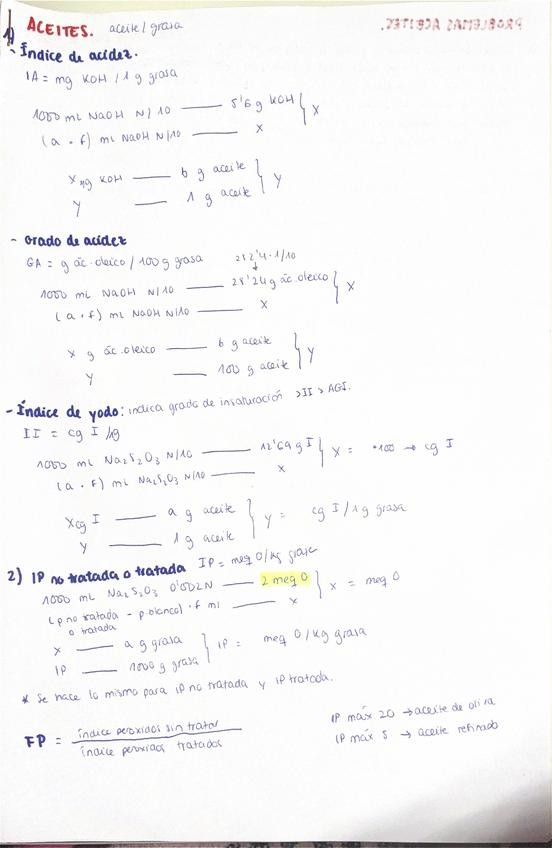 1) ACEITES. aceite/grasa
PROBLEMAS ACEITES.
- Índice de acidez.
IA = mg KOH / 1 g grasa
1000 mL NaOH N/10 —— 5'6 g KOH } x
(a · f) mL NaOH N/10 —— x
x mg KOH —— b g aceite } y
y —— 1 g aceite
- Grado de acidez
GA = g ác. oleico / 100 g grasa
282'4 · 1/10
↓
1000 mL NaOH N/10 —— 28'24 g ác. oleico } x
(a · f) mL NaOH N/10 —— x
x g ác. oleico —— b g aceite } y
y —— 100 g aceite
- Índice de yodo: indica grado de insaturación >II > AGI.
II = cg I /1g
1000 mL Na2S2O3 N/10 —— 12'69 g I } x = ·100 → cg I
(a · f) mL Na2S2O3 N/10 —— x
x cg I —— a g aceite } y = cg I / 1 g grasa
y —— 1 g aceite
2) IP no tratada o tratada IP = meq O/kg grasa
1000 mL Na2S2O3 0'002N —— 2 meq O } x = meq O
(p no tratada - p. blanco) · f ml —— x
o tratada
x —— a g grasa } IP = meq O / kg grasa
IP —— 1000 g grasa
* Se hace lo mismo para IP no tratada y IP tratada.
FP = índice peroxidos sin tratar / índice peroxidos tratados
IP máx 20 → aceite de oliva
IP máx 5 → aceite refinado